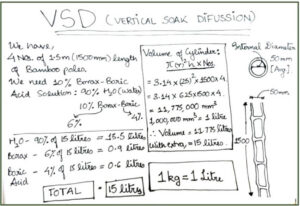 VSD (VERTICAL SOAK DIFUSSION)
We have,
4 Nos. of 1.5m (1500mm) length
of Bamboo poles
We need 10% Borax-Boric
Acid Solution: 90% H₂O (water)
10% Borax-Boric
6% 4%
H₂O - 90% of 15 litres = 13.5 litres
Borax - 6% of 15 litres = 0.9 litre
Boric Acid - 4% of 15 litres = 0.6 litre
TOTAL 15 litres
Volume of Cylinder:
π(r)² h × Nos.
= 3.14 × (25)² × 1500 × 4
= 3.14 × 625 × 1500 × 4
= 11,775,000 mm³
1,000,000 mm³ = 1 litre
∴ Volume = 11.775 litres
With extra, = 15 litres
1 kg = 1 Litre
Internal Diameter
50mm
[Avg.]
50mm
1500